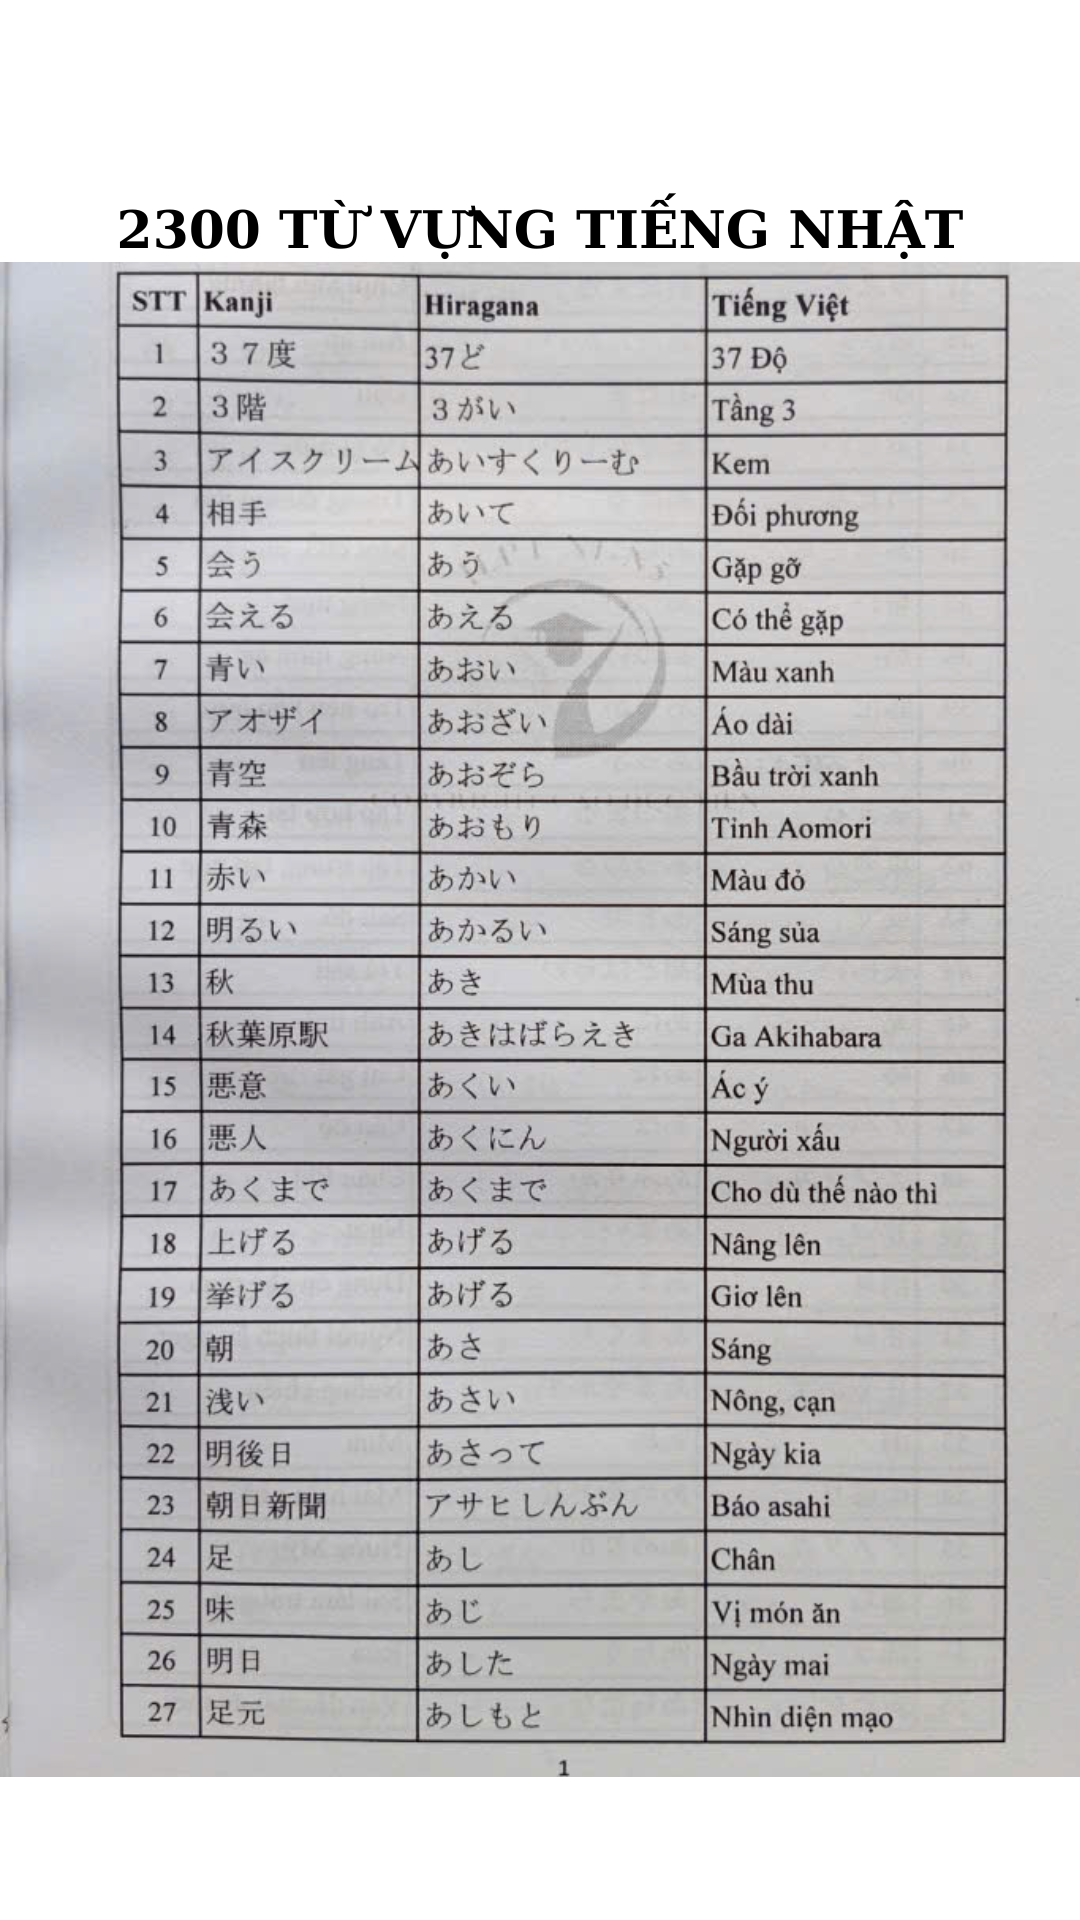 2300 TỪ VỰNG TIẾNG NHẬT
STT Kanji Hiragana Tiếng Việt
1 ３７度 37ど 37 Độ
2 ３階 ３がい Tầng 3
3 アイスクリーム あいすくりーむ Kem
4 相手 あいて Đối phương
5 会う あう Gặp gỡ
6 会える あえる Có thể gặp
7 青い あおい Màu xanh
8 アオザイ あおざい Áo dài
9 青空 あおぞら Bầu trời xanh
10 青森 あおもり Tỉnh Aomori
11 赤い あかい Màu đỏ
12 明るい あかるい Sáng sủa
13 秋 あき Mùa thu
14 秋葉原駅 あきはばらえき Ga Akihabara
15 悪意 あくい Ác ý
16 悪人 あくにん Người xấu
17 あくまで あくまで Cho dù thế nào thì
18 上げる あげる Nâng lên
19 挙げる あげる Giơ lên
20 朝 あさ Sáng
21 浅い あさい Nông, cạn
22 明後日 あさって Ngày kia
23 朝日新聞 アサヒしんぶん Báo asahi
24 足 あし Chân
25 味 あじ Vị món ăn
26 明日 あした Ngày mai
27 足元 あしもと Nhìn diện mạo
1